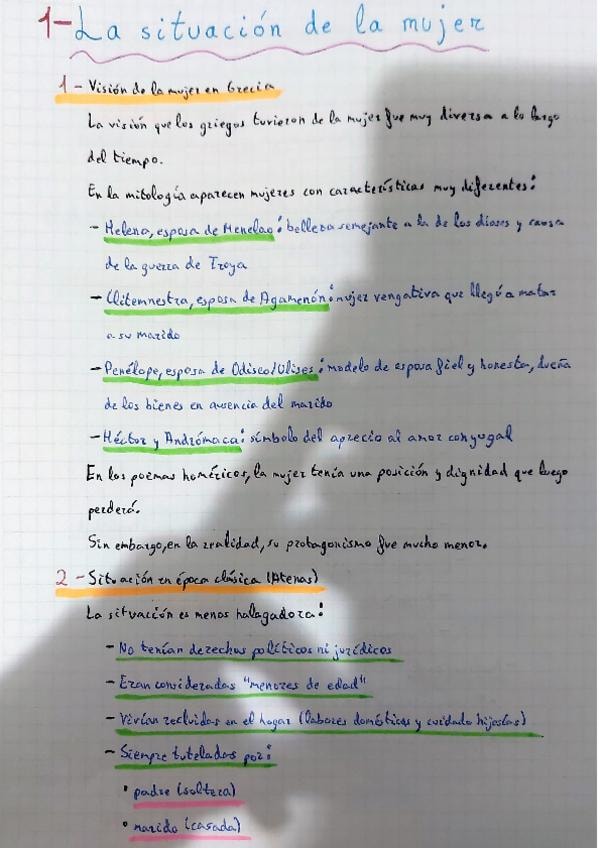 1-La situación de la mujer
1 - Visión de la mujer en Grecia
La visión que los griegos tuvieron de la mujer fue muy diversa a lo largo
del tiempo.
En la mitología aparecen mujeres con características muy diferentes:
- Helena, esposa de Menelao: belleza semejante a la de los dioses y causa
de la guerra de Troya
- Clitemnestra, esposa de Agamenón: mujer vengativa que llegó a matar
a su marido
- Penélope, esposa de Odiseo/Ulises: modelo de esposa fiel y honesta, dueña
de los bienes en ausencia del marido
- Héctor y Andrómaca: símbolo del aprecio al amor conyugal
En los poemas homéricos, la mujer tenía una posición y dignidad que luego
perderá.
Sin embargo, en la realidad, su protagonismo fue mucho menor.
2 - Situación en época clásica (Atenas)
La situación es menos halagadora:
- No tenían derechos políticos ni jurídicos
- Eran consideradas "menores de edad"
- Vivían recluidas en el hogar (labores domésticas y cuidado hijos/as)
- Siempre tuteladas por:
• padre (soltera)
• marido (casada)